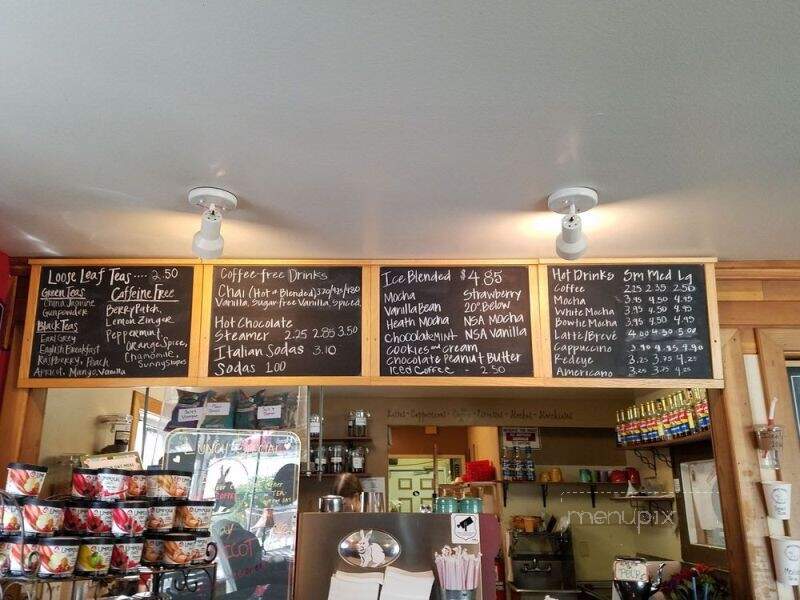 Loose Leaf Teas .... 2.50
Green Teas
China Jasmine
Gunpowder
Black Teas
Earl Grey
English Breakfast
Raspberry, Peach
Apricot, Mango, Vanilla
Caffeine Free
Berry Patch,
Lemon Zinger
Peppermint
Orange Spice,
Chamomile,
Coffee-free Drinks
Chai (Hot & Blended)
Vanilla, Sugar free Vanilla, Spiced
Hot Chocolate
Steamer 2.25 2.85 3.50
Italian Sodas 3.10
Sodas 1.00
Ice Blended $4.85
Mocha Strawberry
Vanilla Bean 20° Below
Heath Mocha NSA Mocha
Chocolate Mint NSA Vanilla
Cookies and Cream
Chocolate Peanut Butter
Iced Coffee - 2.50
Hot Drinks Sm Med Lg
Coffee 2.25 2.35 2.50
Mocha 3.95 4.50 4.95
White Mocha 3.95 4.50 4.95
Bowtie Mocha 3.95 4.50 4.95
Latte/Brevé 4.00 4.30 5.00
Cappuccino
Redeye 3.25 3.75 4.25
Americano 3.25 3.75 4.25
menupix